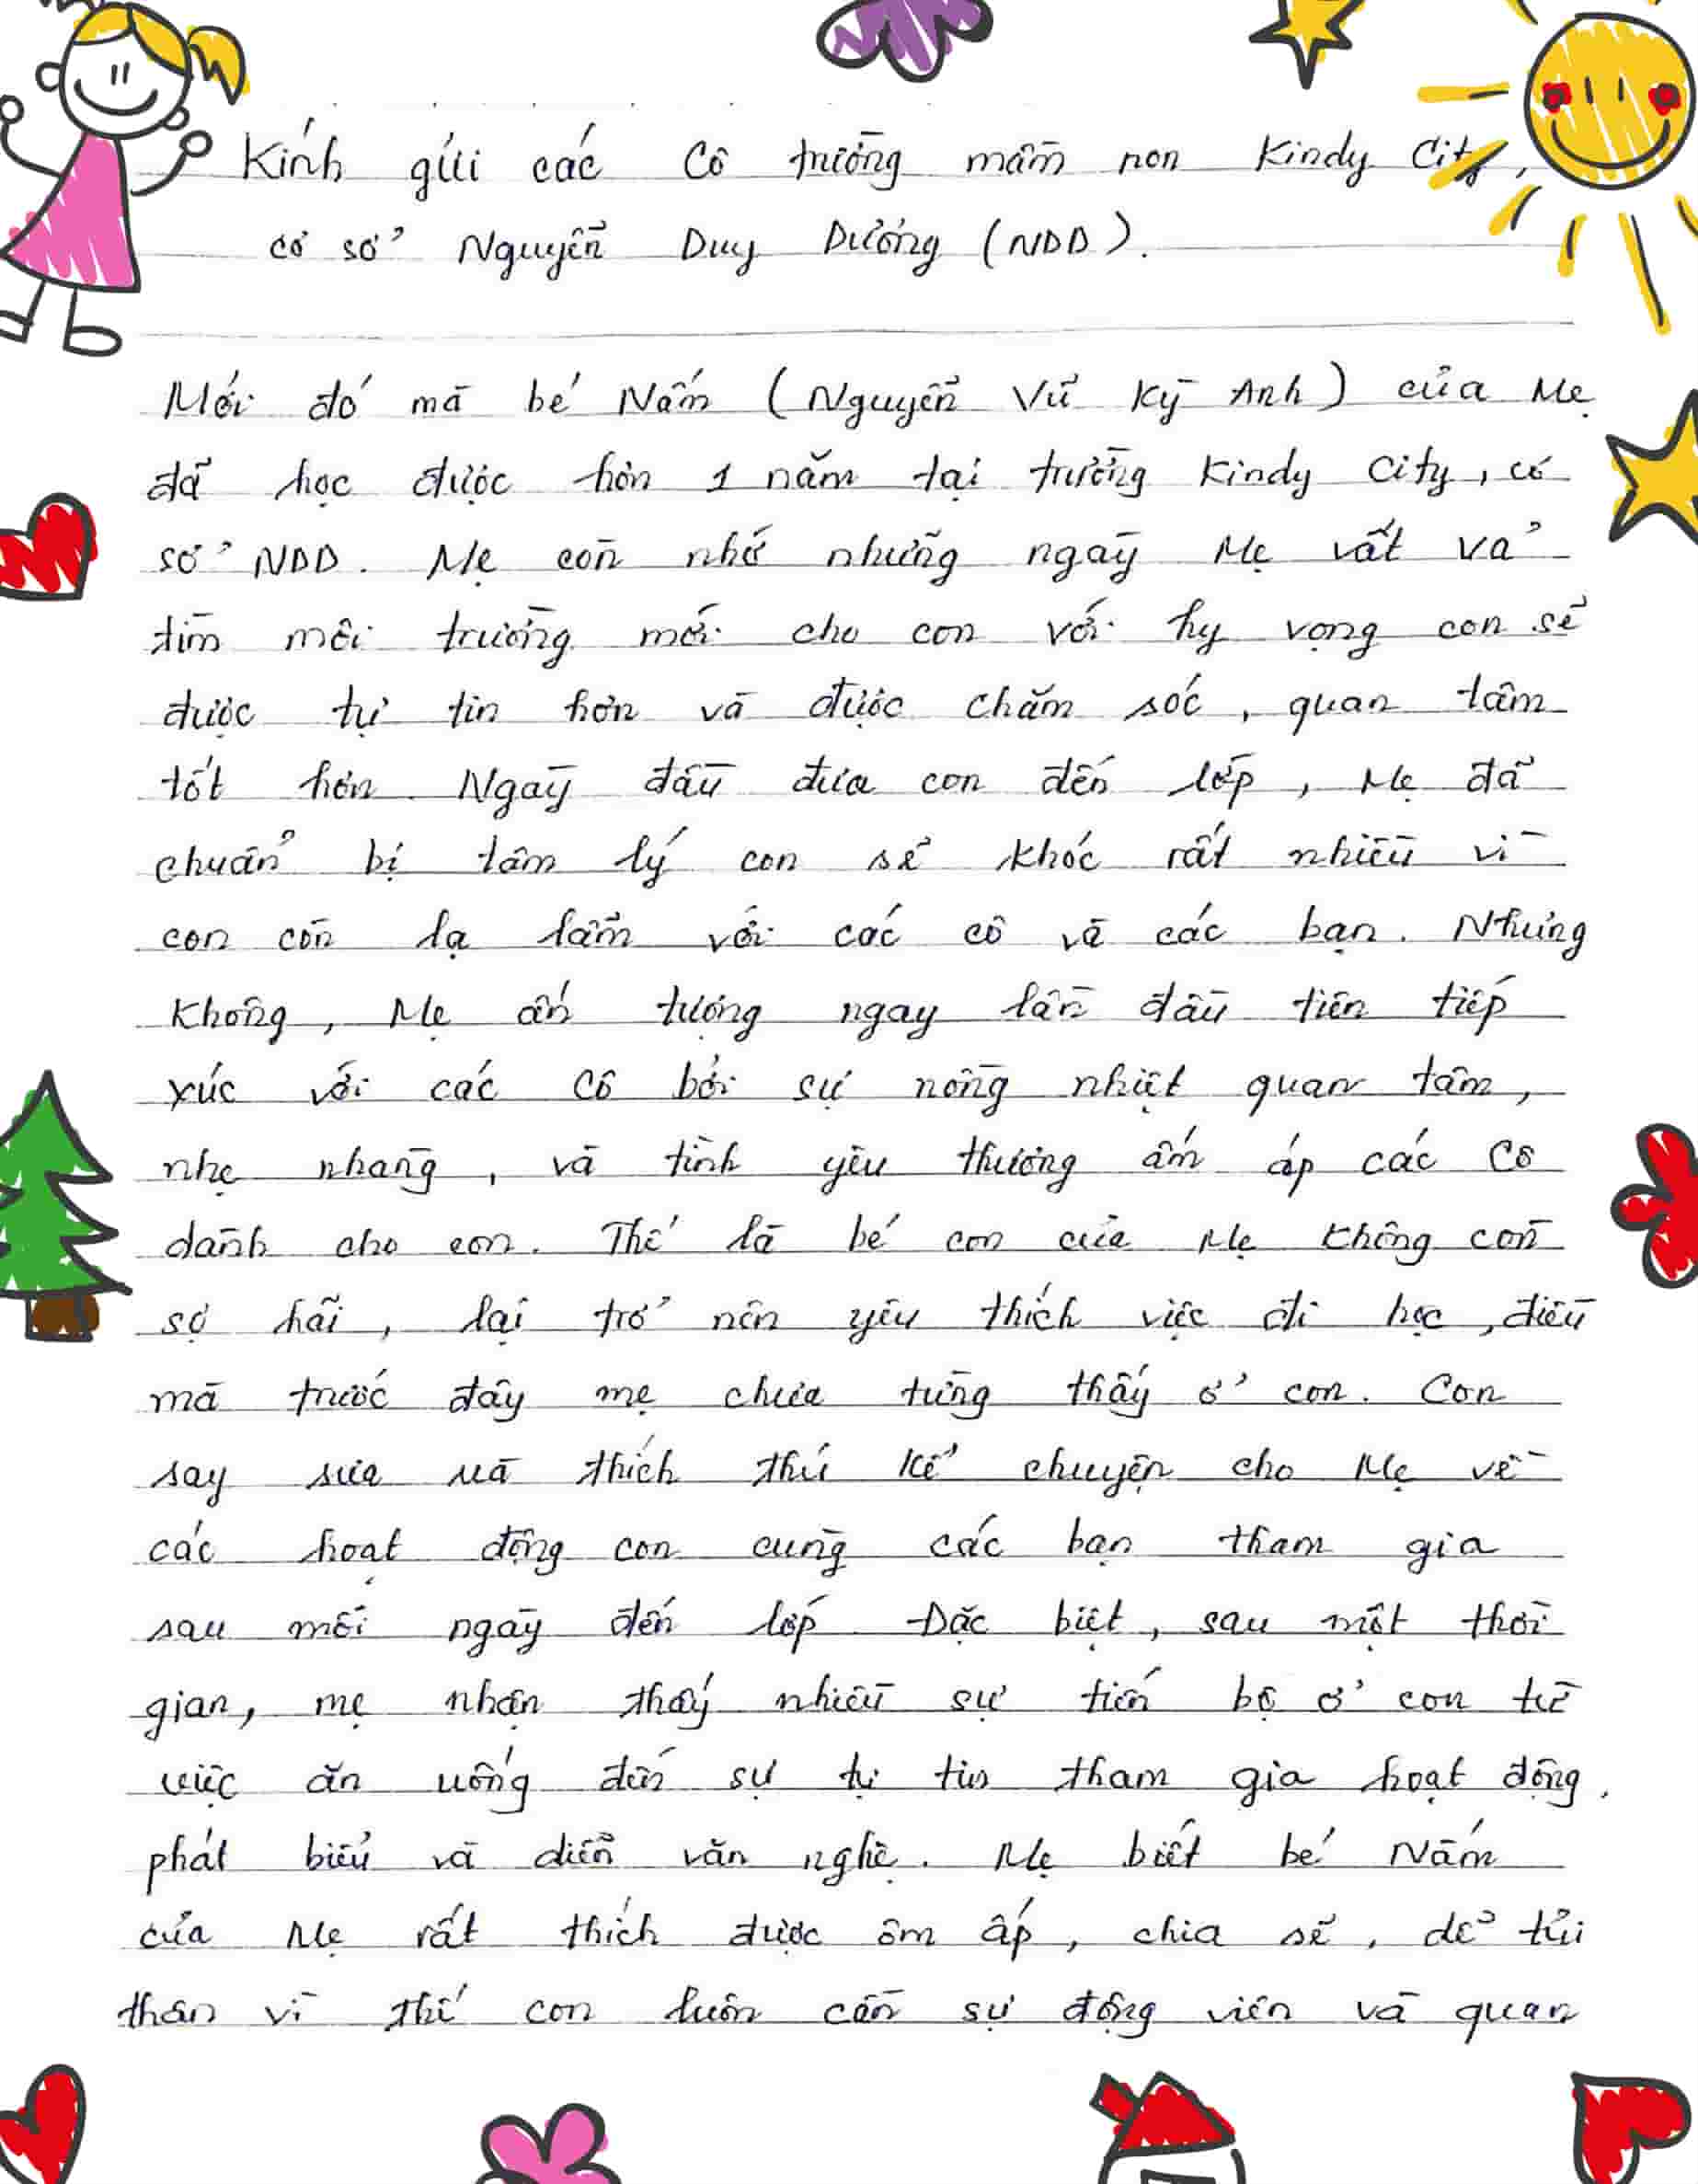 Kính gửi các Cô trường mầm non Kindy City,
cơ sở Nguyễn Duy Dương (NDD).
Mới đó mà bé Nấm (Nguyễn Vũ Kỳ Anh) của Mẹ
đã học được hơn 1 năm tại trường Kindy City, cơ
sở NDD. Mẹ còn nhớ những ngày Mẹ vất vả
tìm môi trường mới cho con với hy vọng con sẽ
được tự tin hơn và được chăm sóc, quan tâm
tốt hơn. Ngày đầu đưa con đến lớp, Mẹ đã
chuẩn bị tâm lý con sẽ khóc rất nhiều vì
con còn lạ lẫm với các cô và các bạn. Nhưng
không, Mẹ ấn tượng ngay lần đầu tiên tiếp
xúc với các Cô bởi sự nồng nhiệt quan tâm,
nhẹ nhàng, và tình yêu thương ấm áp các Cô
dành cho con. Thế là bé con của Mẹ không còn
sợ hãi, lại trở nên yêu thích việc đi học, điều
mà trước đây mẹ chưa từng thấy ở con. Con
say sưa và thích thú kể chuyện cho Mẹ về
các hoạt động con cùng các bạn tham gia
sau mỗi ngày đến lớp. Đặc biệt, sau một thời
gian, mẹ nhận thấy nhiều sự tiến bộ ở con từ
việc ăn uống đến sự tự tin tham gia hoạt động,
phát biểu và diễn văn nghệ. Mẹ biết bé Nấm
của Mẹ rất thích được ôm ấp, chia sẽ, dễ tủi
thân vì thế con luôn cần sự động viên và quan